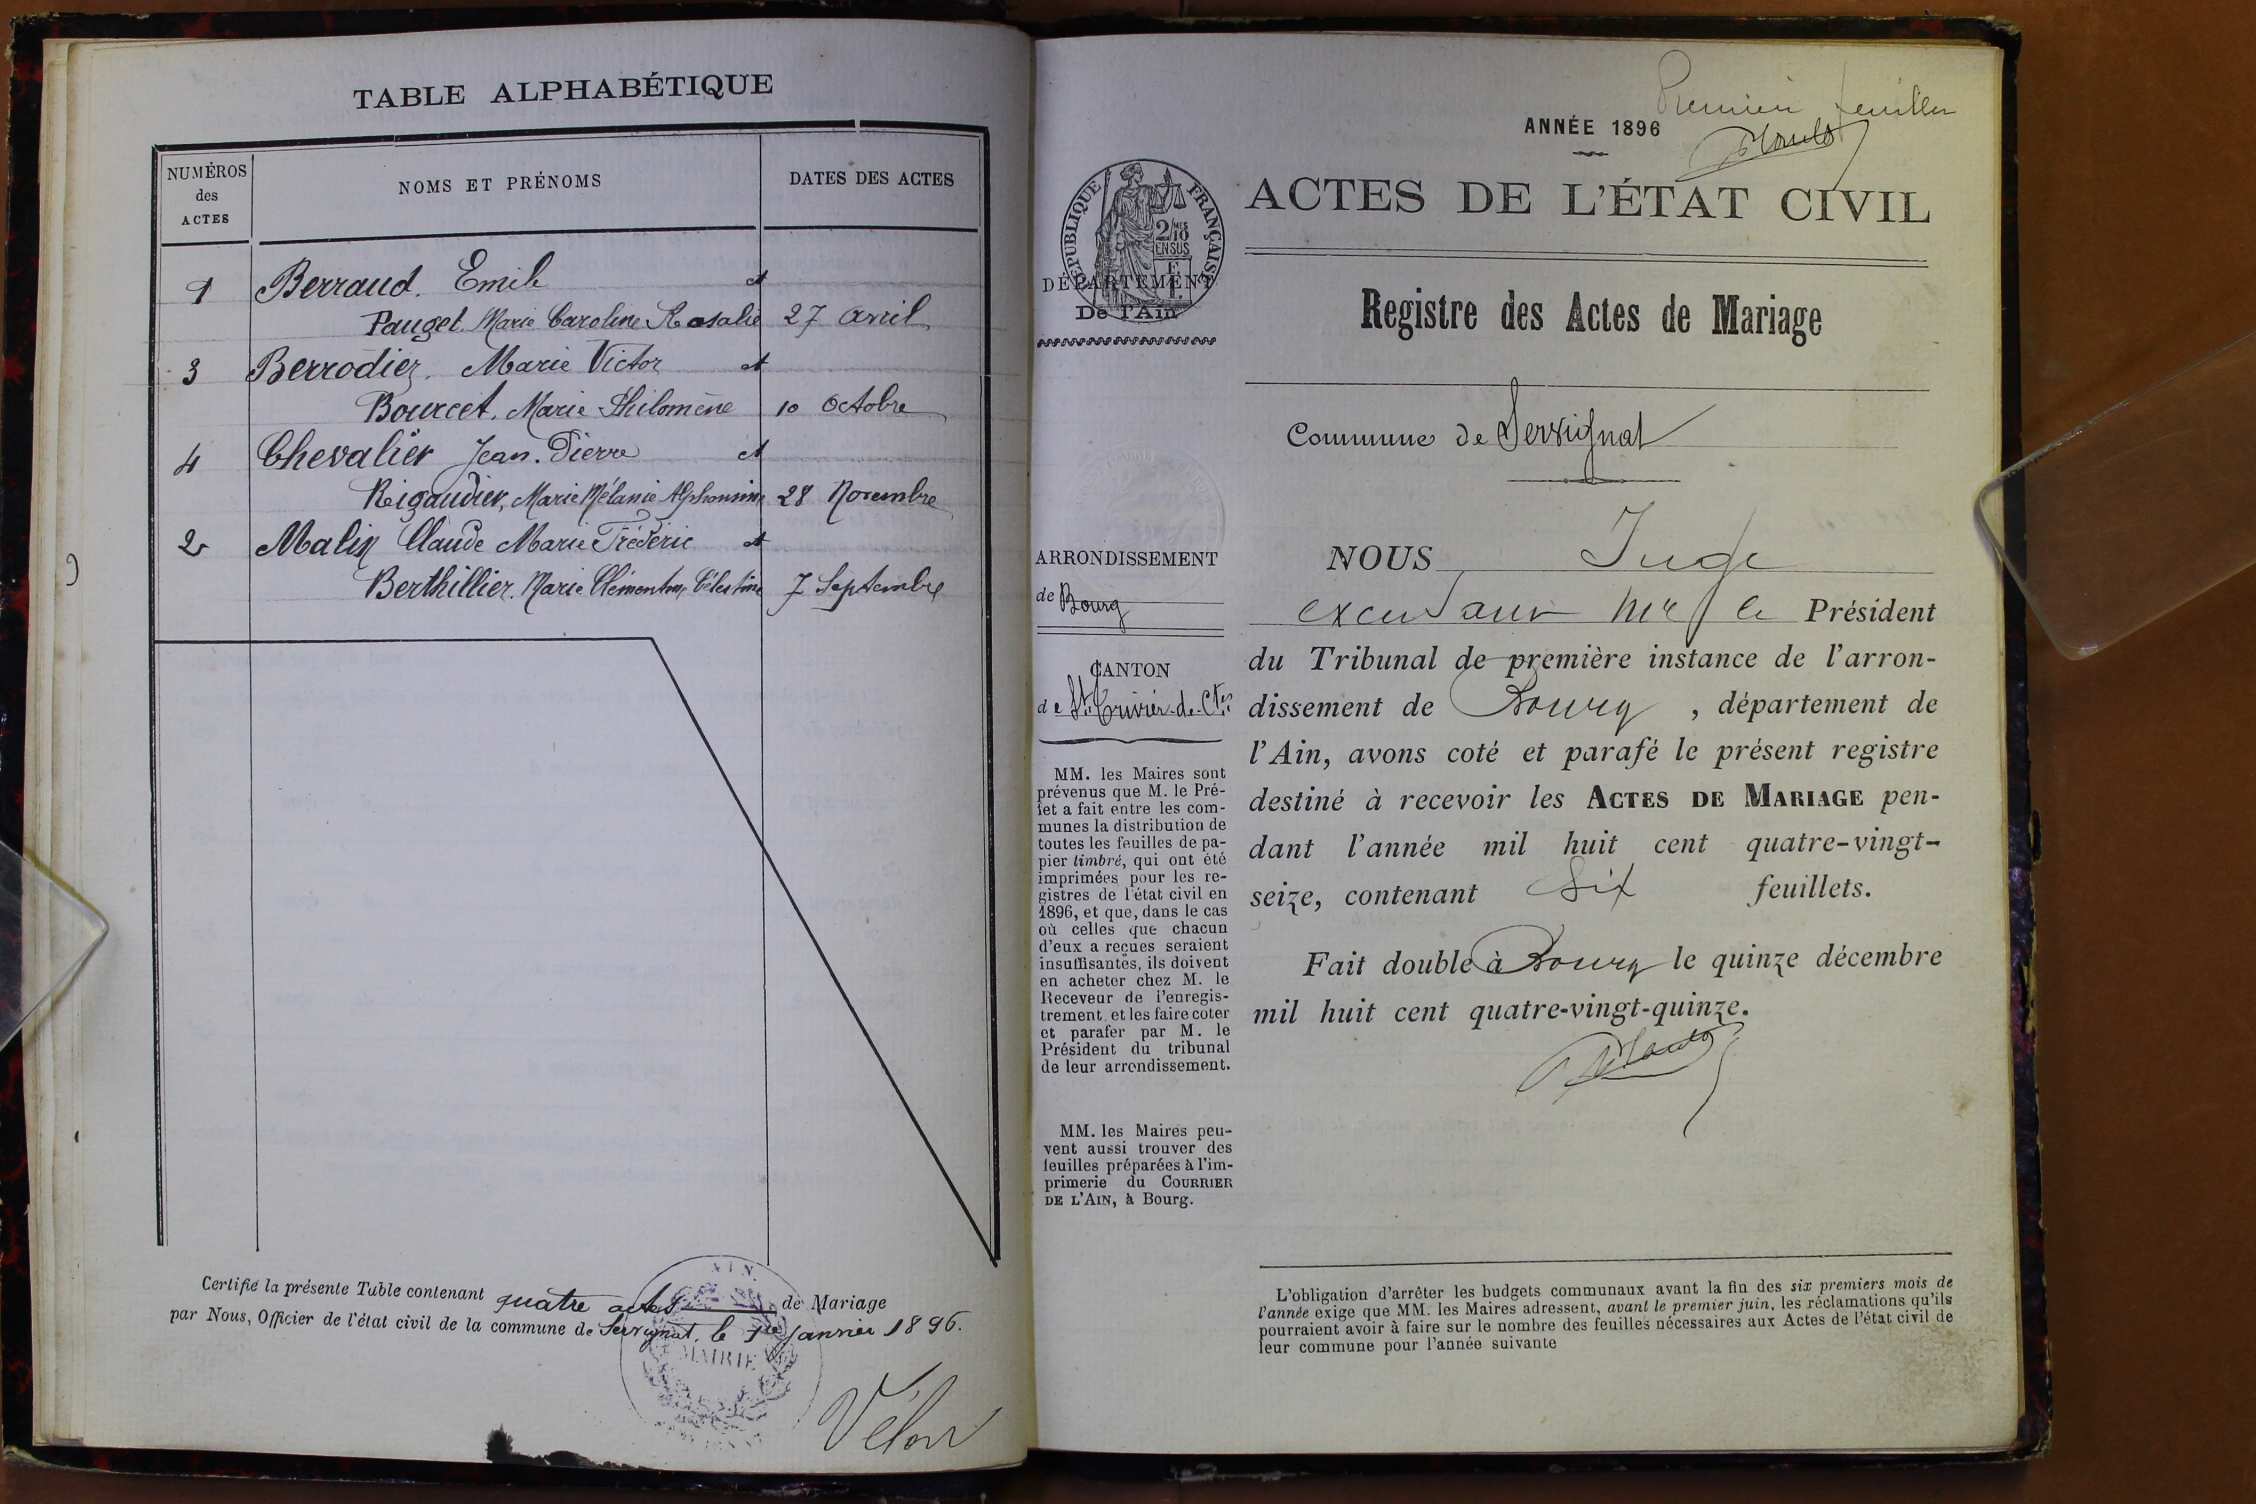 TABLE ALPHABÉTIQUE
NUMÉROS
des
ACTES
NOMS ET PRÉNOMS
DATES DES ACTES
1 Berraud. Emile et
Pauget Marie Caroline Rosalie 27 avril
3 Berrodier. Marie Victor et
Bourcet. Marie Philomène 10 Octobre
4 Chevalier Jean-Pierre et
Rigaudier, Marie Mélanie Alphonsine 28 Novembre
2 Malin Claude Marie Frédéric et
Berthillier. Marie Clémentine Célestine 7 Septembre
Certifié la présente Table contenant quatre actes de Mariage
par Nous, Officier de l'état civil de la commune de Servignat, le 1er Janvier 1896.
AIN
MAIRIE
Premier feuillet
ANNÉE 1896
ACTES DE L'ÉTAT CIVIL
RÉPUBLIQUE FRANÇAISE
2/10
EN SUS
DÉPARTEMENT
De l'Ain
Registre des Actes de Mariage
Commune de Servignat
ARRONDISSEMENT
de Bourg
CANTON
de St. Trivier-de-Ctes
MM. les Maires sont
prévenus que M. le Pré-
fet a fait entre les com-
munes la distribution de
toutes les feuilles de pa-
pier timbré, qui ont été
imprimées pour les re-
gistres de l'état civil en
1896, et que, dans le cas
où celles que chacun
d'eux a reçues seraient
insuffisantes, ils doivent
en acheter chez M. le
Receveur de l'enregis-
trement et les faire coter
et parafer par M. le
Président du tribunal
de leur arrondissement.
MM. les Maires peu-
vent aussi trouver des
feuilles préparées à l'im-
primerie du COURRIER
DE L'AIN, à Bourg.
NOUS Juge
Mr le Président
du Tribunal de première instance de l'arron-
dissement de Bourg, département de
l'Ain, avons coté et parafé le présent registre
destiné à recevoir les ACTES DE MARIAGE pen-
dant l'année mil huit cent quatre-vingt-
seize, contenant Six feuillets.
Fait double à Bourg le quinze décembre
mil huit cent quatre-vingt-quinze.
L'obligation d'arrêter les budgets communaux avant la fin des six premiers mois de
l'année exige que MM. les Maires adressent, avant le premier juin, les réclamations qu'ils
pourraient avoir à faire sur le nombre des feuilles nécessaires aux Actes de l'état civil de
leur commune pour l'année suivante